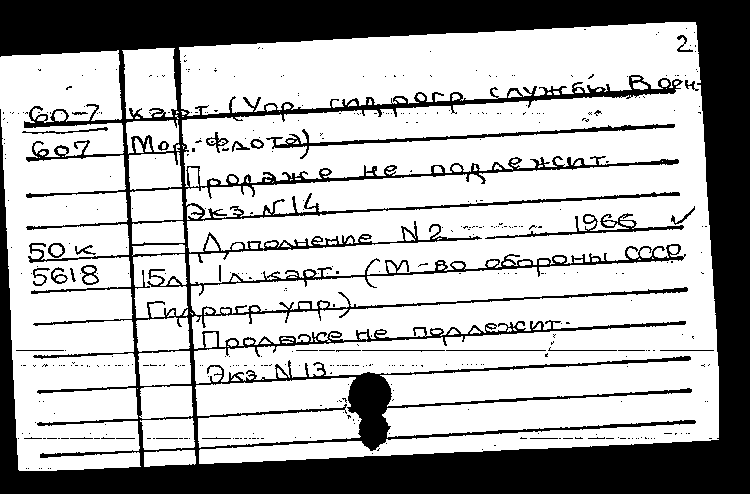 2
60-7 карт. (Упр. гидрогр службы Воен-
607 Мор.-Флота)
Продаже не подлежит.
Экз. N 14
50к — Дополнение N 2 1966 ✓
5618 15л., 1л. карт. (М-во обороны СССР
Гидрогр упр.).
Продаже не подлежит.
Экз. N 13